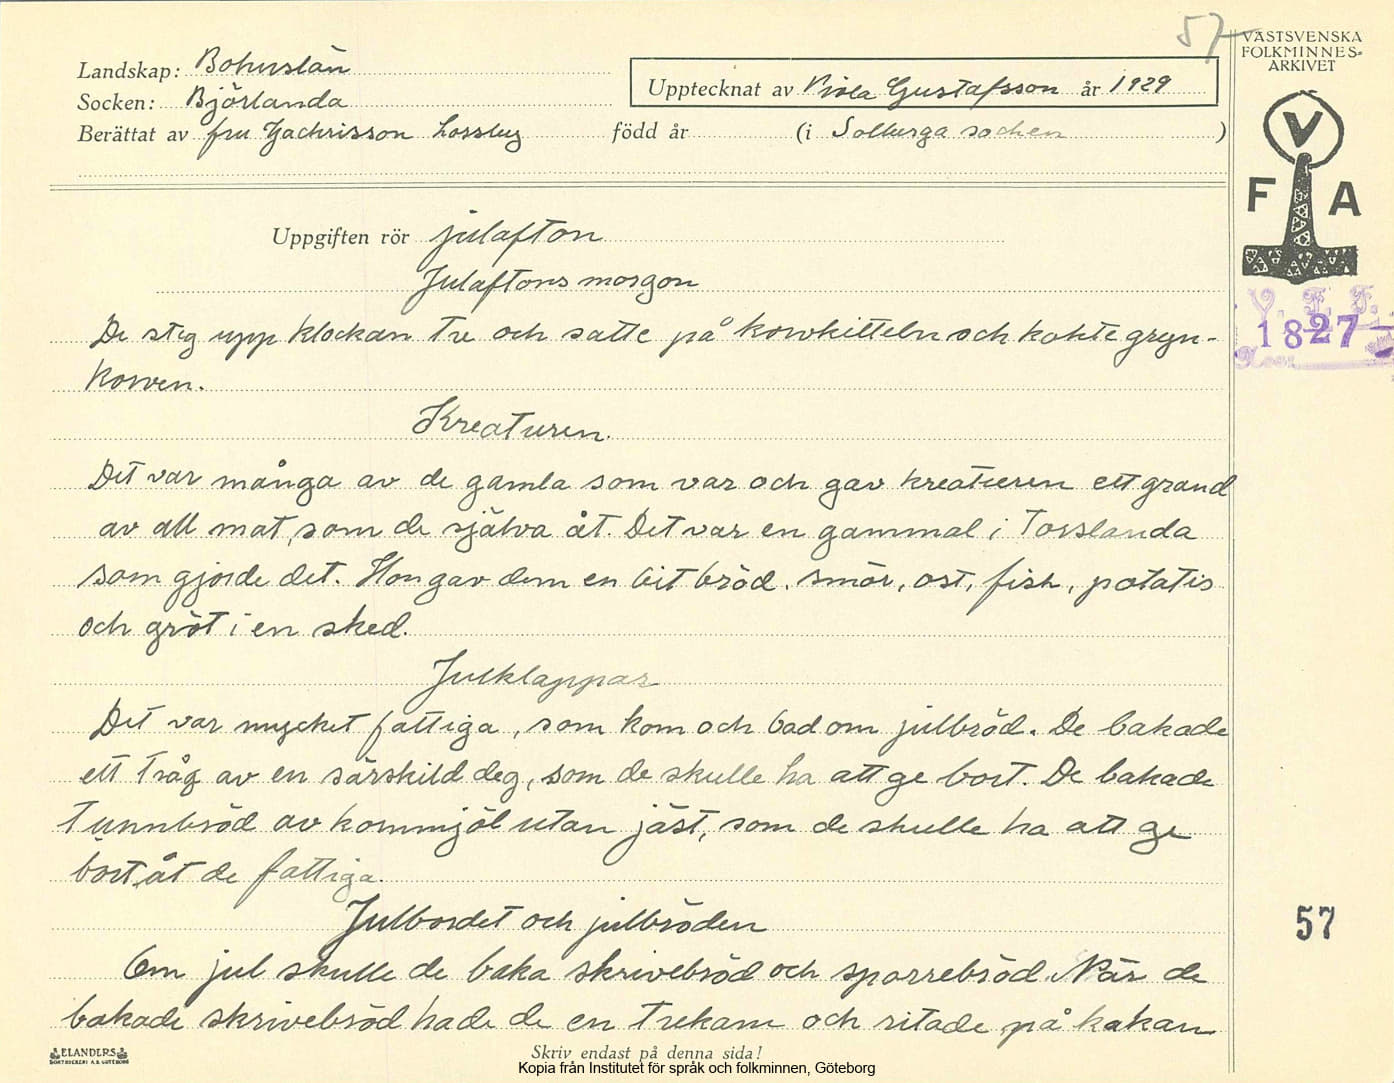 57
VÄSTSVENSKA
FOLKMINNES-
ARKIVET
Landskap: Bohuslän
Socken: Björlanda
Upptecknat av Viola Gustafsson år 1929
Berättat av fru Zachrisson Lossby född år (i Solberga socken )
V
F A
Uppgiften rör julafton
Julaftons morgon
V. F. F.
1827
De steg upp klockan tre och satte på korvkitteln och kokte gryn-
korven.
Kreaturen.
Det var många av de gamla som var och gav kreaturen ett grand
av all mat, som de själva åt. Det var en gammal i Torslanda
som gjorde det. Hon gav dem en bit bröd, smör, ost, fisk, potatis
och gröt i en sked.
Julklappar
Det var mycket fattiga, som kom och bad om julbröd. De bakade
ett tråg av en särskild deg, som de skulle ha att ge bort. De bakade
tunnbröd av kornmjöl utan jäst, som de skulle ha att ge
bort åt de fattiga.
Julbordet och julbröden
57
Om jul skulle de baka skrivebröd och sparrebröd. När de
bakade skrivebröd hade de en trekam och ritade på kakan
ELANDERS
BOKTRYCKERI A.B. GÖTEBORG
Skriv endast på denna sida!
Kopia från Institutet för språk och folkminnen, Göteborg